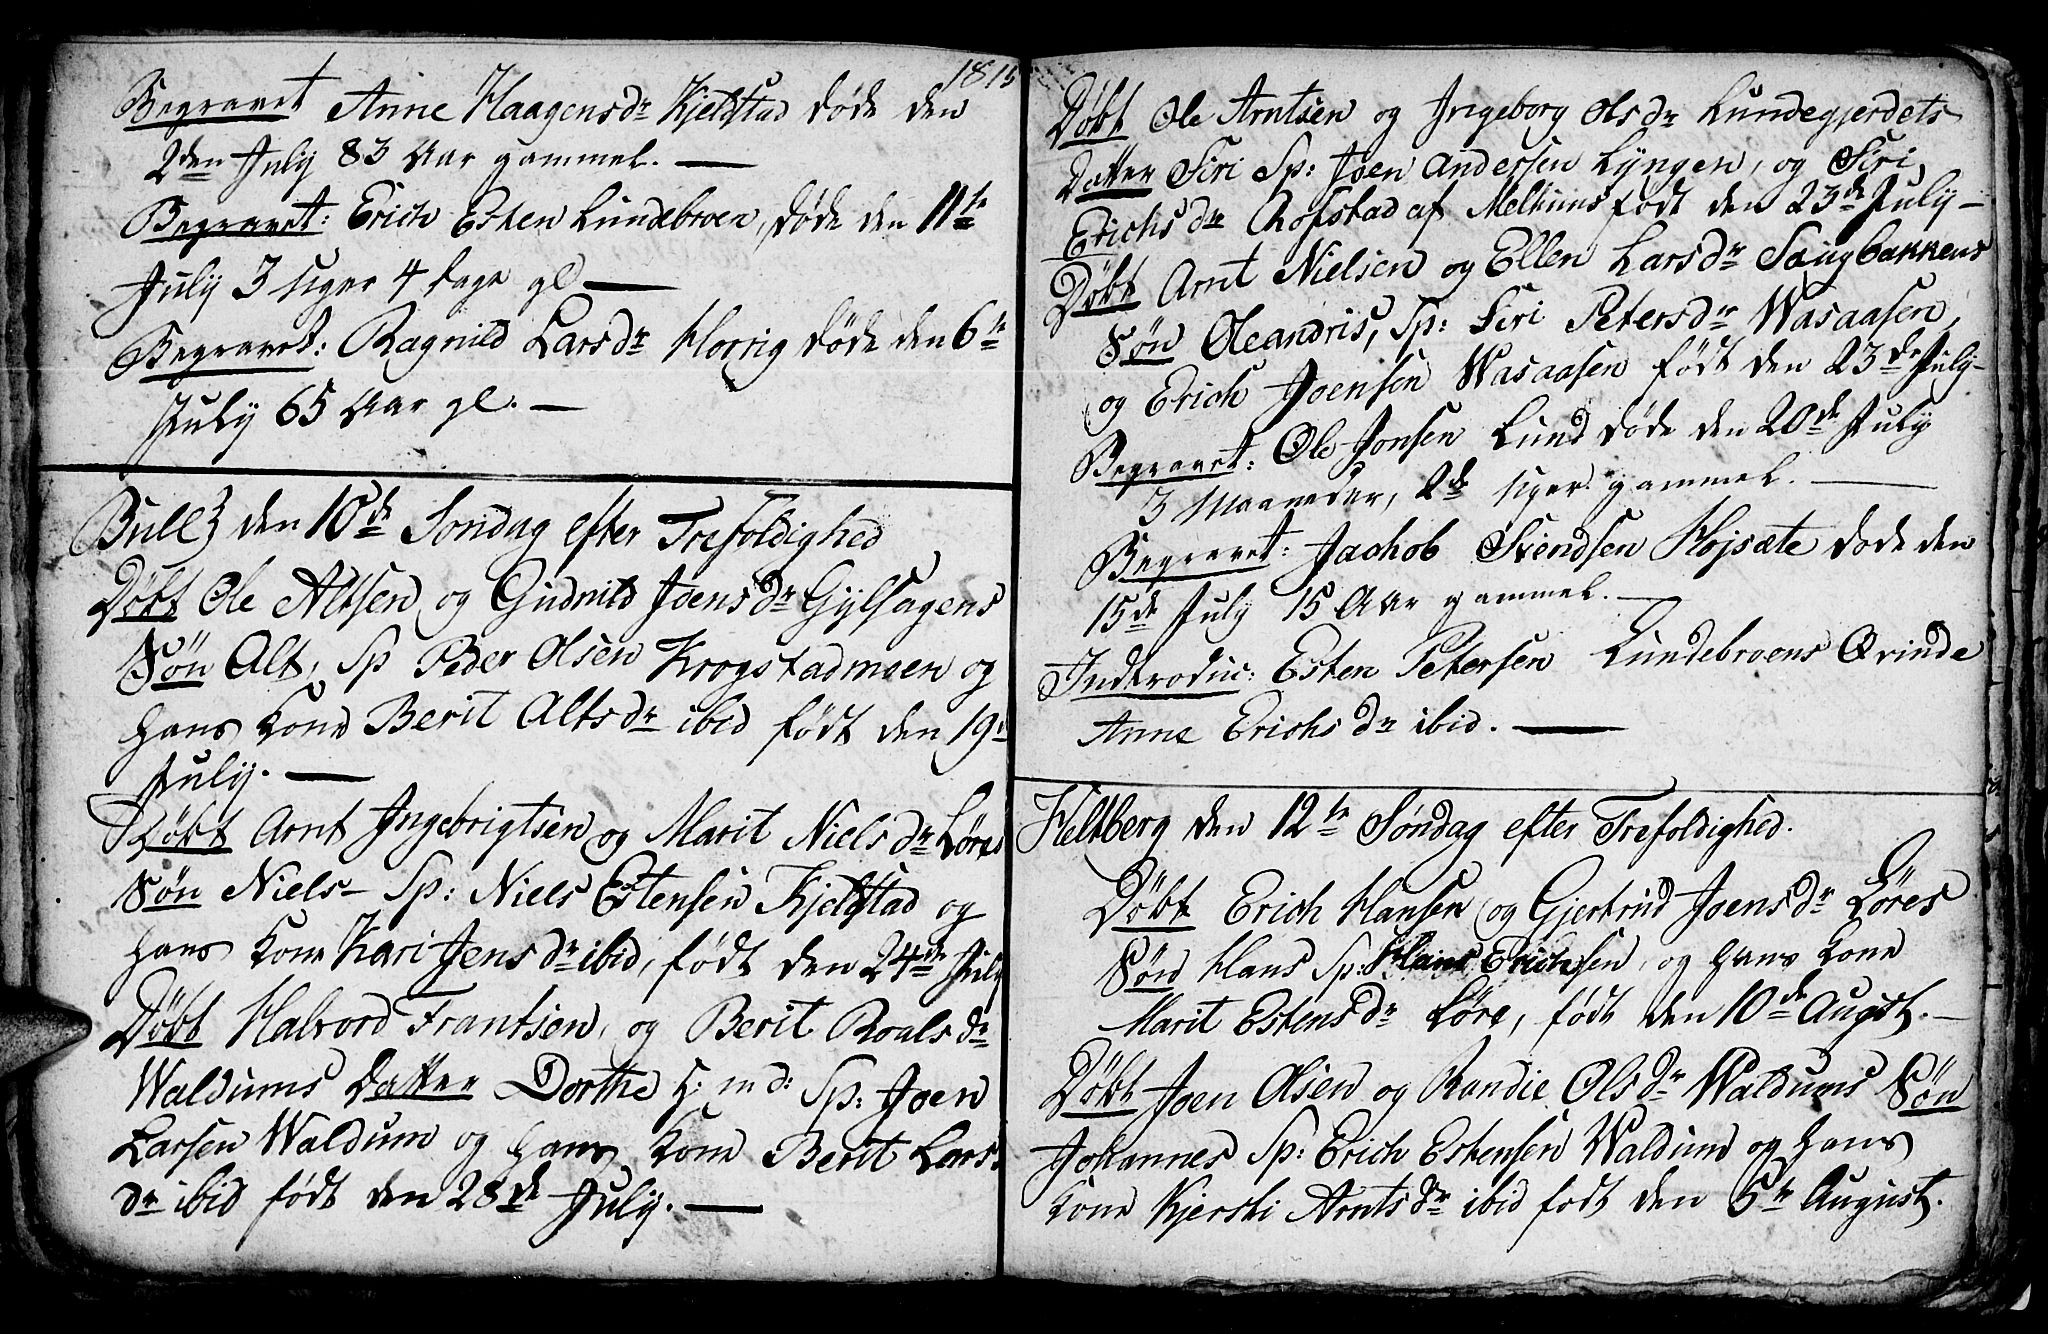 1815
Begravet Anne Haagensdr Kjelstad døde den
2den July 83 Aar gammel. —
Begravet: Erich Esten Lundebroen, døde den 11te
July 3 Uger 4 dage gl —
Begravet: Ragnild Larsdr Horrig døde den 6te
July 65 Aar gl. —
Bull den 10de Søndag efter Trefoldighed
Døbt Ole Altsen og Gudnild Joensdr Gylhagens
Søn Alt, Sp Peder Olsen Krogstadmoen og
hans Kone Berit Altsdr ibid født den 19d
July. —
Døbt Arnt Ingebrigtsen og Marit Nielsdr Løres
Søn Niels - Sp: Niels Estensen Kjelstad og
hans Kone Kari Jensdr ibid, født den 24de July
Døbt Halvord Frantsen, og Berit Roalsdr
Waldums Datter Dorthe H: m d: Sp: Joen
Larsen Waldum og hans Kone Berit Lars
dr ibid født den 28de July. —
Døbt Ole Arntsen og Ingeborg Olsdr Lundegjerdets
Datter Siri Sp: Joen Andersen Lyngen, og Siri
Erichsdr Rofstad af Melhuus født den 23de July —
Døbt Arnt Nielsen og Ellen Larsdr Saugbakkens
Søn Oleandris, Sp: Siri Petersdr Wasaasen,
og Erich Joensen Wasaasen født den 23de July -
Begravet: Ole Jonsen Lund døde den 20de July
3 Maaneder, 2de Uger gammel. —
Begravet: Jachob Svendsen Højsæte døde den
15de July 15 Aar gammel. —
Indtroduc: Esten Petersen Lundebroens Qvinde
Anne Erichsdr ibid. —
Heltberg den 12te Søndag efter Trefoldighed.
Døbt Erich Hansen og Gjertrud Joensdr Løres
Søn Hans Sp: Hans Erichsen, og hans Kone
Marit Estensdr Løre, født den 10de Augst. —
Døbt Joen Olsen og Randie Olsdr Waldums Søn
Johannes Sp: Erich Estensen Waldum og hans
Kone Kjersti Arntsdr ibid født den 5te August.